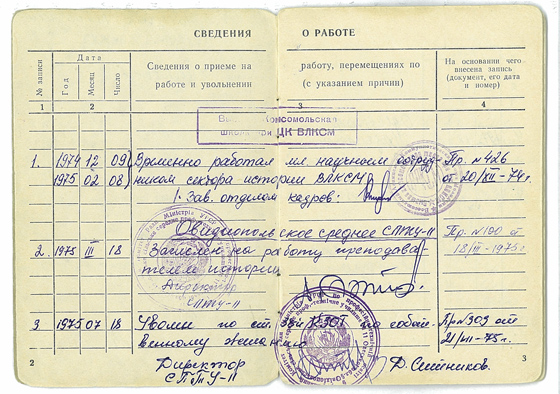 СВЕДЕНИЯ О РАБОТЕ
№ записи
Дата
Год
Месяц
Число
Сведения о приеме на работу, перемещениях по
работе и увольнении (с указанием причин)
На основании чего
внесена запись
(документ, его дата
и номер)
1 2 3 4
Комсомольская
школа при ЦК ВЛКСМ
1. 1974 12 09 Временно работал мл. научным сотруд- Пр. №426
1975 02 08 ником сектора истории ВЛКСМ от 20/XII-74г.
Зав. отделом кадров:
Овидиопольское среднее СПТУ-11
2. 1975 III 18 Зачислен на работу преподава- Пр №190 от
телем истории 18/III-1975г
Директор
СПТУ-11
3 1975 07 18 Уволен по ст КЗОТ по собст- Пр №309 от
венному желанию 21/VII-75г.
Директор
СПТУ-11
2 3